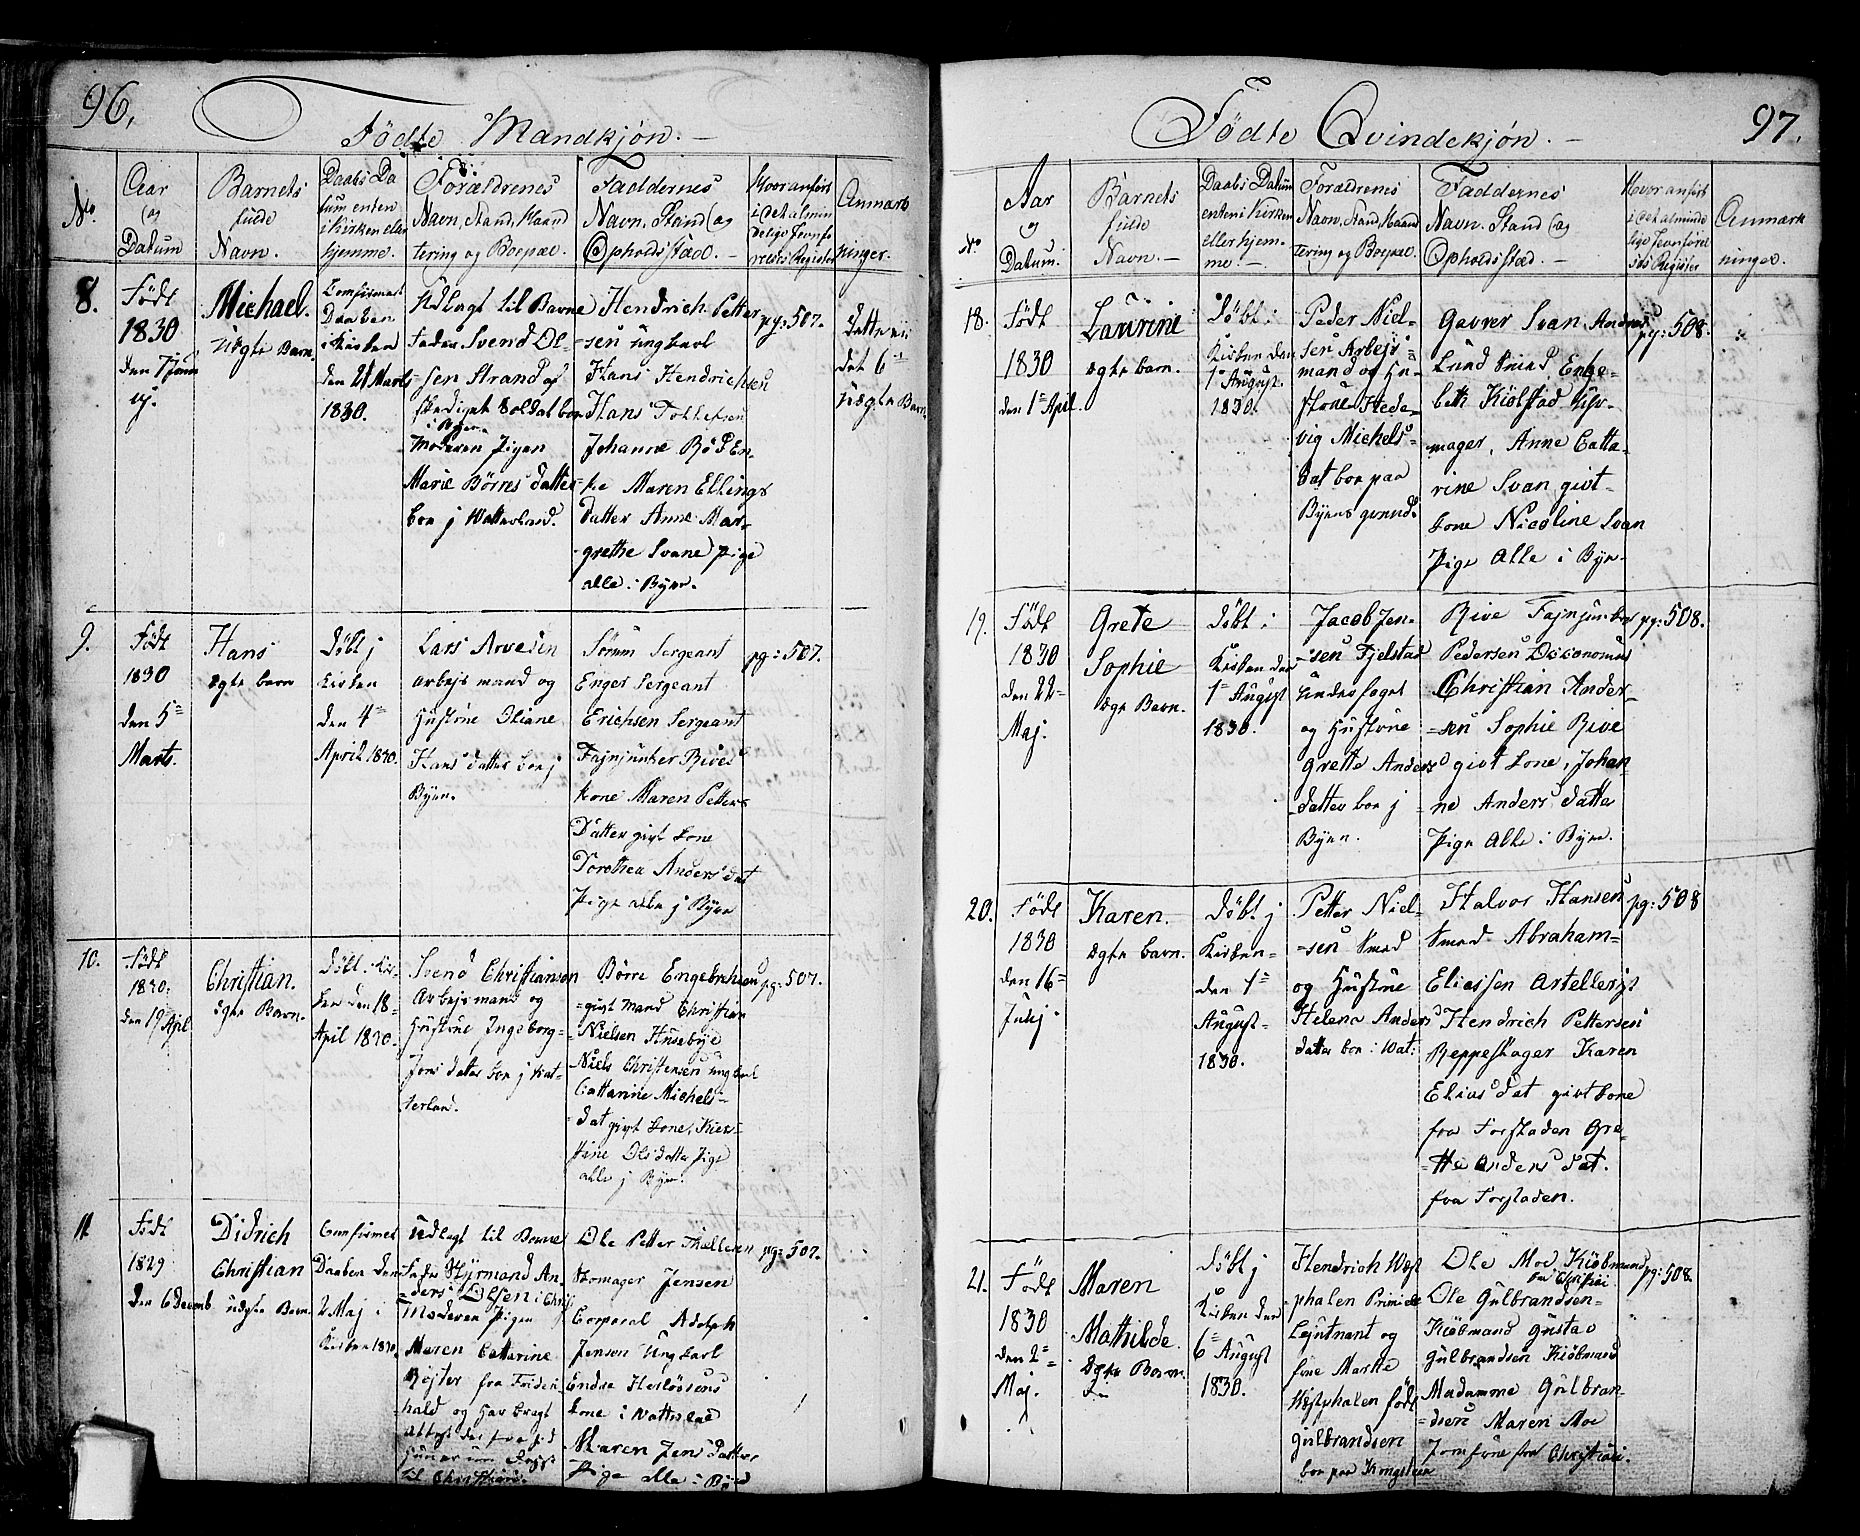 96.
Fødte Mandkjøn.
No
Aar
og
Datum
Barnets
fulde
Navn.
Daabs Da
tum enten
i Kirken eller
hjemme.
Forældrenes
Navn, Stand, Haand
tering og Boepæl.
Faddernes
Navn, Stand og
Opholdssted.
Hvor anført
i det almin
delige Jevnfø
relses Register
Anmærk
ninger.
8.
Født
1830
den 7 Janu
uj.
Michael.
Uægte Barn.
Confirmert
Daaben
i Kirken
den 21 Marts
1830.
Udlagt til Barne
Fader Svend Ol-
sen Strand af
skediget Soldat boe
i Byen.
Moderen Pigen
Marie Børres datter
boe j Watterland.
Hendrich Petter
sen ungkarl
Hans Hendrichsen
Hans Tollefsen
Johanne Rød En-
ke Maren Ellings
datter Anne Mar-
grethe Svane Pige
alle i Byen.
pg: 507.
Dette er
det 6te
uægte Barn
9.
Født
1830
den 5te
Marts.
Hans
ægte barn
Døbt j
Kirken
den 4de
April 1830.
Lars Arvesen
Arbejsmand og
Hustrue Oliane
Hans datter boe j
Byen.
Sørum Sergeant
Enger Sergeant
Erichsen Sergeant
Fajnjunker Rives
kone Maren Petters
Datter givt kone
Dorothea Anders dat
Pige alle j Byen
pg: 507.
10.
Født
1830.
den 19 Apil
Christian.
ægte Barn.
Døbt i Kir-
ken den 18
April 1830.
Svend Christiansen
Arbejsmand og
Hustrue Ingeborg
Jons datter boe j Wat-
terland.
Børre Engebrehsen
givt Mand Christian
Nielsen Huseby
Niels Christensen ungkarl
Cattarine Michels-
dat givt kone, Kier-
stine Olsdatter Pige
alle j Byen.
pg: 507.
11
Født
1829
den 6 Decemb
Didrich
Christian
uægte Barn.
Confirmert
Daaben den
2 Maj i
Kirken 1830.
Udlagt til Barne
Fader Styrmand An-
ders Olsen i Christ.
Moderen Pigen
Maren Cattarine
Røjter fra Friderich-
hald og har bragt
til Christiania.
Ole Petter Thællesen
Skomager Jensen
Corporal Adolph
Jensen Ungkarl
Endre Herløvsens
kone i Watterland
Maren Jens datter
Pige alle i Byen
pg: 507.
Fødte Qvindekjøn.
97.
No
Aar
og
Datum.
Barnets
fulde
Navn.
Daabs Datum
enten i Kirken
eller hjem-
me
Forældrenes
Navn, Stand, Haand
tering og Boepæl.
Faddernes
Navn, Stand og
Opholdssted.
Hvor anført
i det alminde
lige Jevnførel
ses Register
Anmærk
ninger.
18.
Født
1830
den 1te April.
Laurine
ægte barn.
Døbt i
Kirken den
1te August.
1830.
Peder Niel-
sen Arbejs
mand og Hu-
strue Hede-
vig Michels
dat boe paa
Byens grund.
Garver Svan Anders
Lund Smed Enge-
beth Kiølstad Uhr-
mager, Anne Catta-
rine Svan givt
kone Nicoline Svan
Pige Alle i Byen
pg: 508.
19.
Født
1830
den 22
Maj.
Grete
Sophie
ægte Barn.
Døbt i
Kirken den
1te August
1830.
Jacob Jen-
sen Fjelstad
Underfoget
og Hustrue
Grette Anders
datter boe j
Byen.
Rive Fajnjunker
Pedersen Oeconomus
Christian Ander-
sen Sophie Rive
givt kone, Johan-
ne Anders datter
Pige Alle i Byen.
pg: 508.
20.
Født
1830
den 16
Julj.
Karen.
ægte barn.
Døbt j
Kirken
den 1te
August
1830.
Petter Niel-
sen Smed
og Hustrue
Helena Anders
datter boe i Wat:
Halvor Hansen
Smed Abraham
Eliassen Artellerist
Hendrich Pettersen
Reppeslager Karen
Elias dat givt kone
fra Forstaden Gre-
tte Anders dat.
fra Forstaden.
pg: 508
21.
Født
1830
den 2
Maj.
Maren
Mathilde.
ægte Barn
Døbt j
Kirken den
6te August
1830.
Hendrich West
phalen Primier
Lejutnant og
frue Marthe
Westphalen født
Gulbrandsen
boe paa Kongsteen
Ole Moe Kiøbmand
fra Christiai
Ole Gulbrandsen
Kiøbmand Gustav
Gulbrandsen Kiøbmand
Madamme Gulbran-
dsen Maren Moe
Jomfrue fra Christiai.
pg: 508.